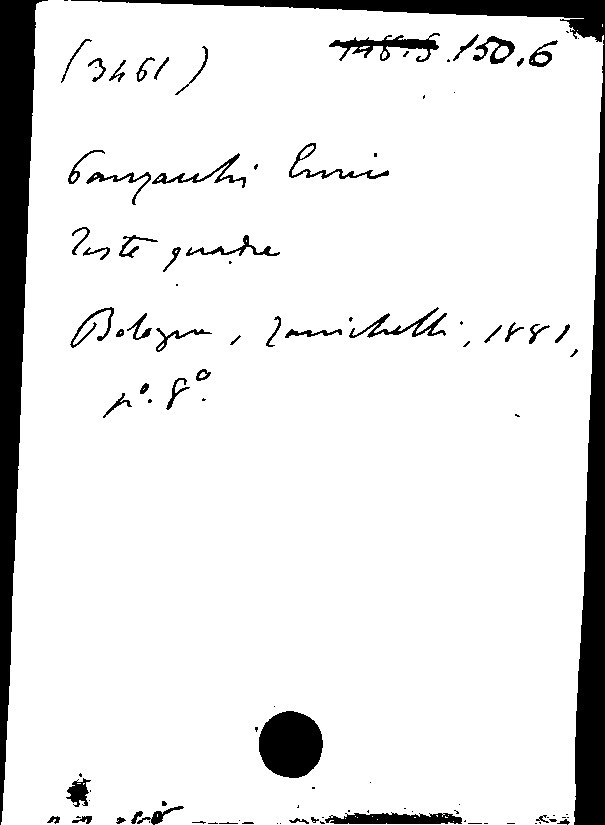 (3461) 148.8 150.6
Panzacchi Enrico
Teste quadre
Bologna, Zanichelli, 1881,
p°. 8°.